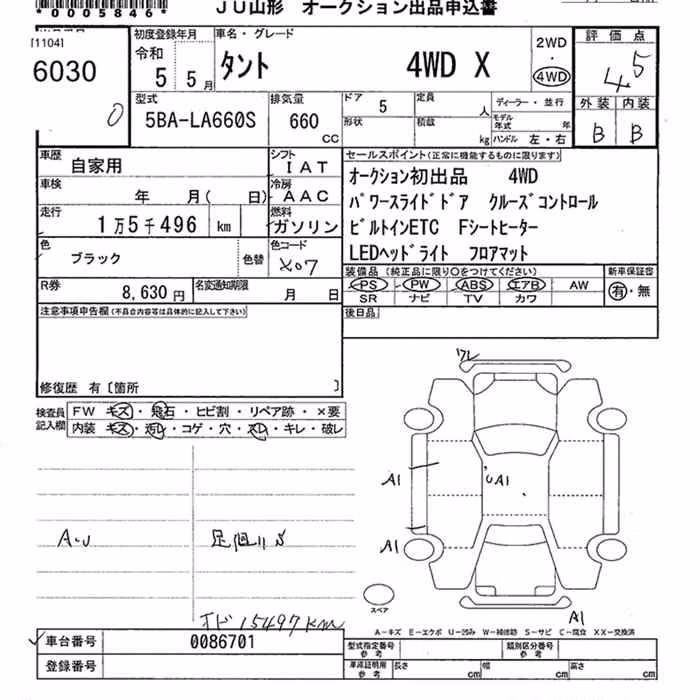 *0005846*
JU山形 オークション出品申込書
[1104]
6030
初度登録年月
令和
5 5 月
車名・グレード
タント 4WD X
2WD
・
4WD
評価点
4.5
外装 内装
B B
型式
5BA-LA660S
排気量
660
cc
ドア 5
定員 人
形状
積載 kg
ディーラー・並行
モデル年式 年
ハンドル 左・右
車歴
自家用
シフト
IAT
車検
年 月( 日)
冷房
AAC
走行
1万5千496 km
燃料
ガソリン
色
ブラック
色替
色コード
X07
R券
8,630 円
名変通知期限
月 日
セールスポイント(正常に機能するものに限ります)
オークション初出品 4WD
パワースライドドア クルーズコントロール
ビルトインETC Fシートヒーター
LEDヘッドライト フロアマット
装備品(純正品に限り○をつけてください)
新車保証書
PS PW ABS エアB AW
SR ナビ TV カワ
有・無
後日品
注意事項申告欄(不具合内容等は具体的に記入して下さい)
修復歴 有〔箇所 〕
検査員記入欄
FW キズ・飛石・ヒビ割・リペア跡・×要
内装 キズ・汚レ・コゲ・穴・スレ・キレ・破レ
ワレ
A1
A1
UA1
A1
スペア
A・U
足回りS
オド 15497km
A-キズ E-エクボ U-凹み W-補修跡 S-サビ C-腐食 XX-交換済
車台番号
0086701
登録番号
型式指定番号
参考
類別区分番号
参考
車庫証明用
参考
長さ cm
幅 cm
高さ cm